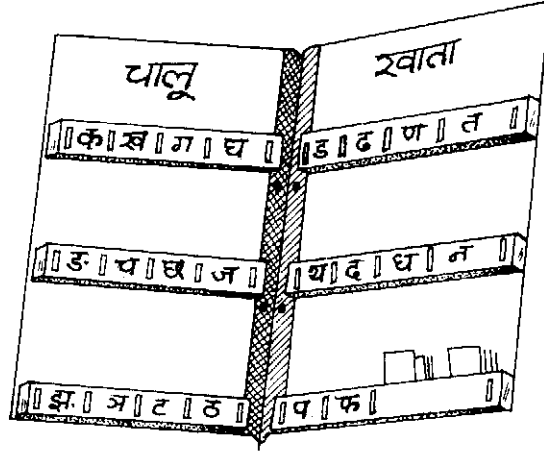 चालू
क ख ग घ
ङ च छ ज
झ ञ ट ठ
खाता
ड ढ ण त
थ द ध न
प फ